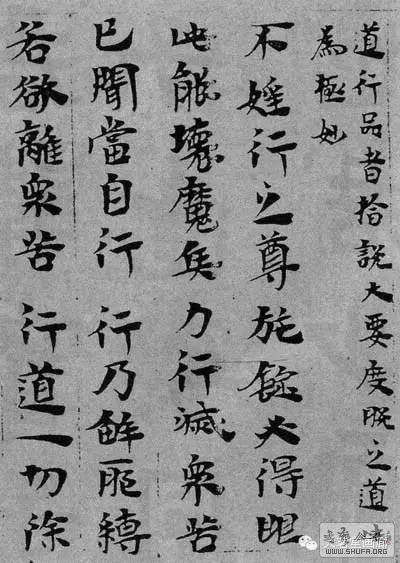 道行品者指說大要度脫之道
為極妙
不婬行之尊施得眼
此能壞魔兵力行滅衆苦
已聞當自行 行乃解邪縛
若欲離衆苦 行道一切除
WWW.SHUFA.ORG